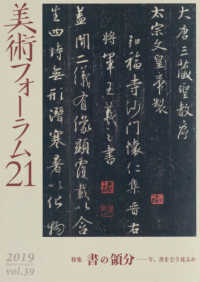 美術フォーラム21
大唐三藏聖教序
太宗文皇帝製
弘福寺沙門懷仁集晉右
將軍王羲之書
蓋聞二儀有像顯覆載以含
生四時無形潛寒暑以化物
2019
vol.39
特集 書の領分──今、書をどう見るか